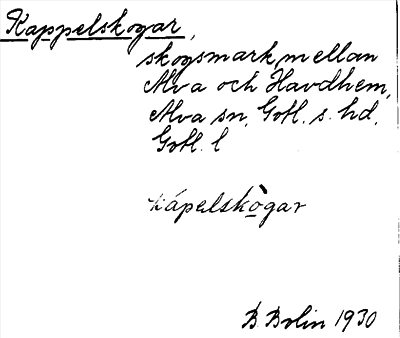 Kappelskogar,
skogsmark, mellan
Alva och Havdhem,
Alva sn, Gotl. s. hd,
Gotl. l
kápelskò̱gar
B Bolin 1930